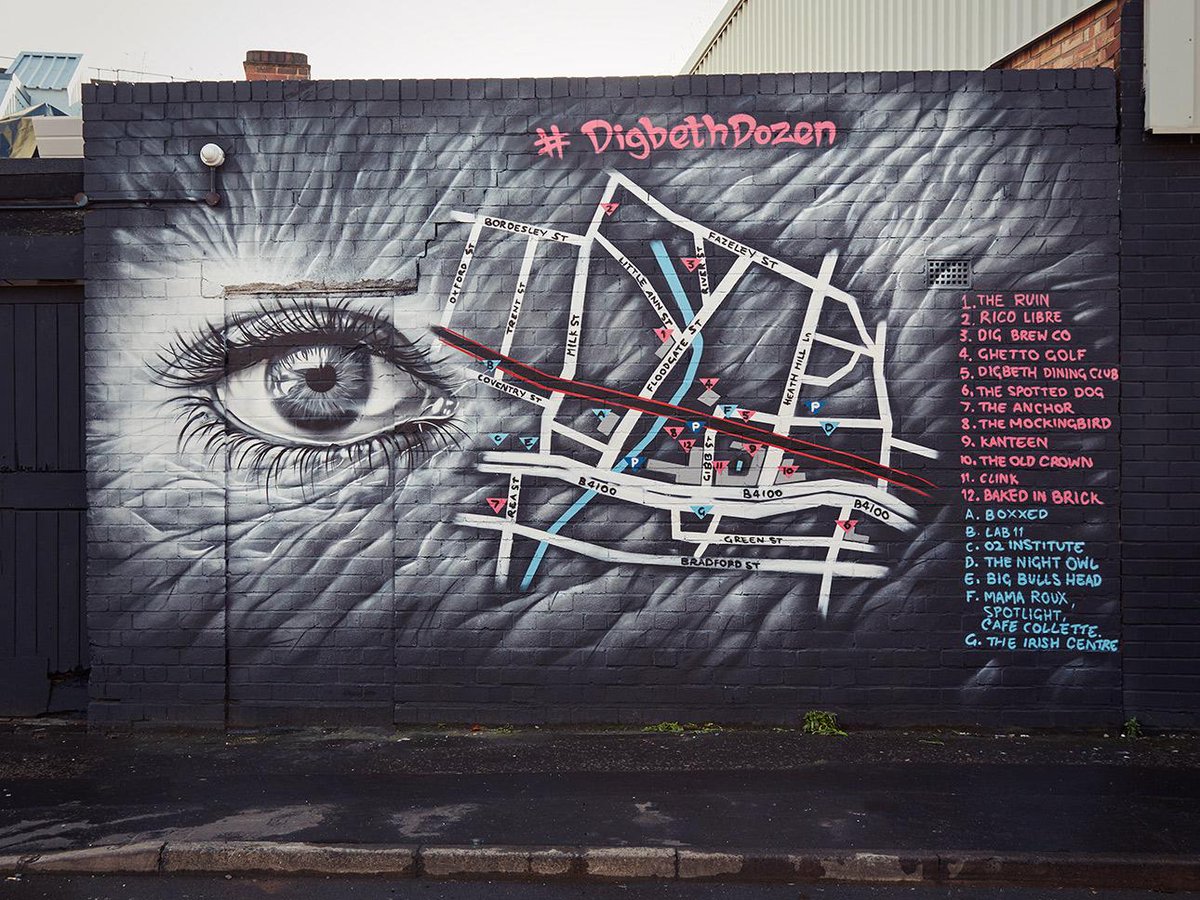 # DigbethDozen
BORDESLEY ST
FAZELEY ST
OXFORD ST
TRENT ST
MILK ST
LITTLE ANN ST
RIVER ST
FLOODGATE ST
HEATH MILL LN
COVENTRY ST
GIBB ST
REA ST
B4100
B4100
B4100
GREEN ST
BRADFORD ST
2
3
1
B
4
A
F
5
P
D
P
8
12
9
C
E
P
11
10
7
G
6
1. THE RUIN
2. RICO LIBRE
3. DIG BREW CO
4. GHETTO GOLF
5. DIGBETH DINING CLUB
6. THE SPOTTED DOG
7. THE ANCHOR
8. THE MOCKINGBIRD
9. KANTEEN
10. THE OLD CROWN
11. CLINK
12. BAKED IN BRICK
A. BOXXED
B. LAB 11
C. O2 INSTITUTE
D. THE NIGHT OWL
E. BIG BULLS HEAD
F. MAMA ROUX,
SPOTLIGHT,
CAFE COLLETTE.
G. THE IRISH CENTRE